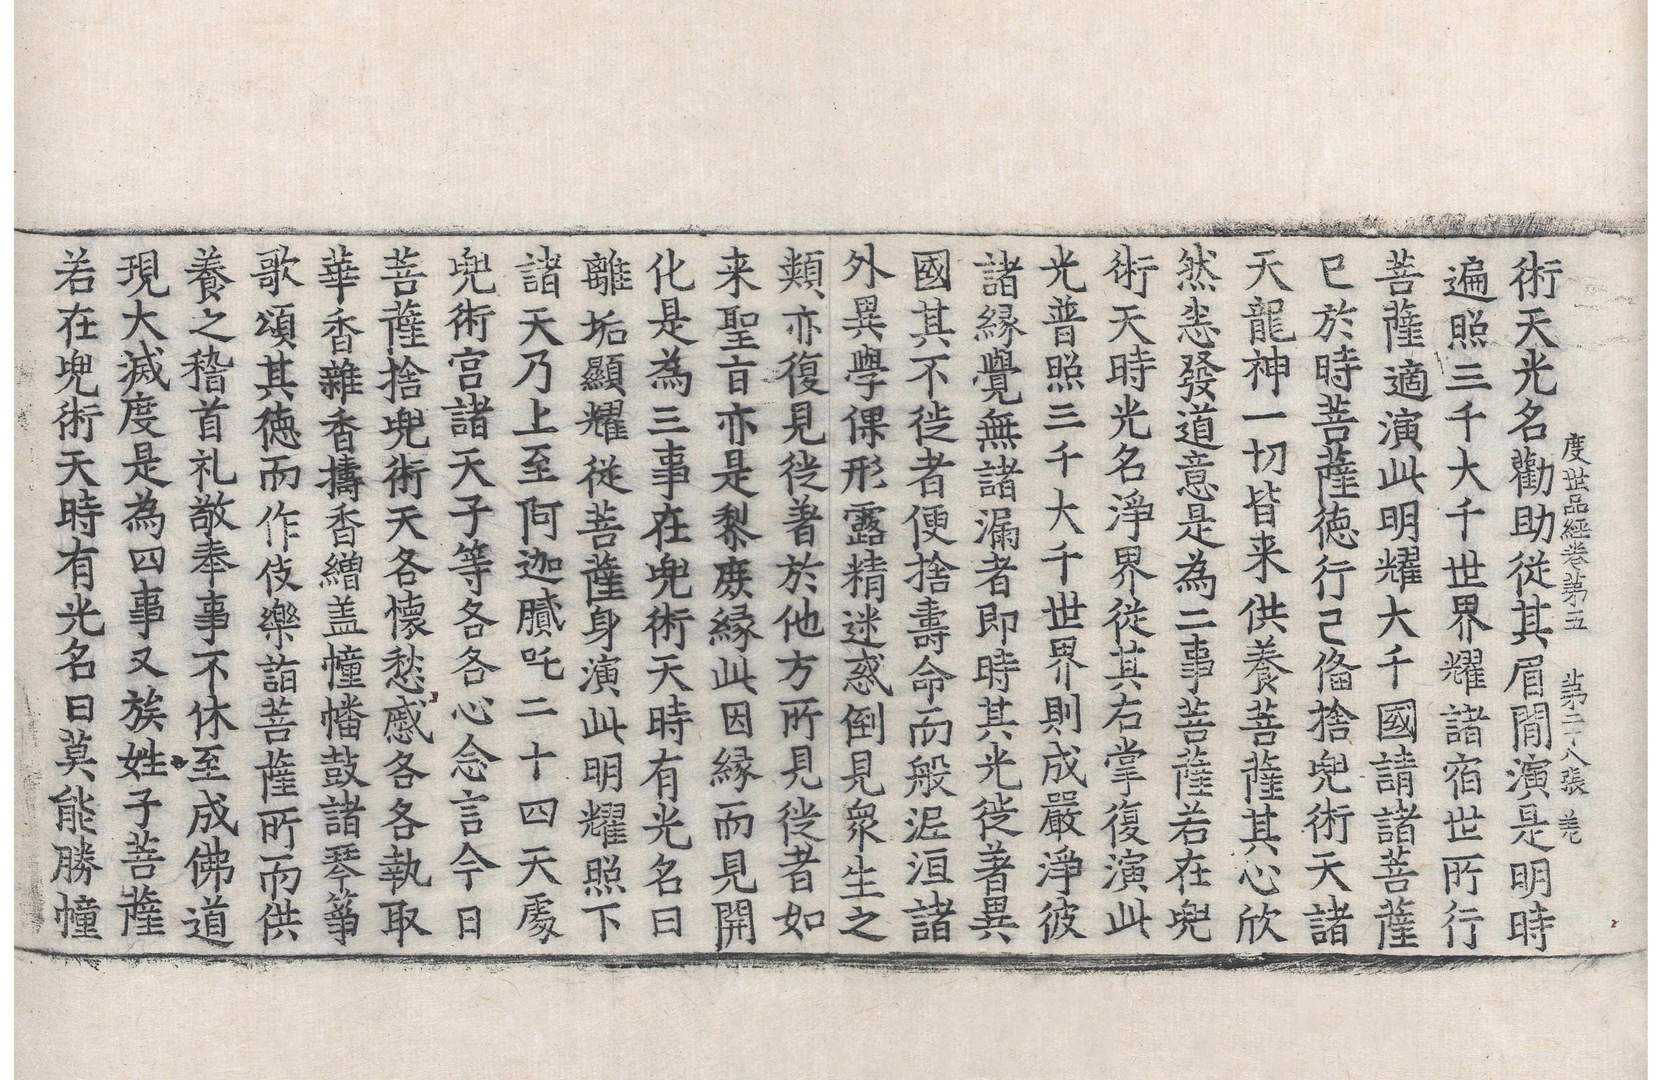 度世品經卷第五　第二十八張　老
術天光名勸助從其眉間演是明時
遍照三千大千世界耀諸宿世所行
菩薩適演此明耀大千國請諸菩薩
已於時菩薩德行已俻捨兜術天諸
天龍神一切皆来供養菩薩其心欣
然悉發道意是為二事菩薩若在兜
術天時光名淨界従其右掌復演此
光普照三千大千世界則成嚴淨彼
諸縁覺無諸漏者即時其光徙著異
國其不徙者便捨壽命而般泥洹諸
外異學倮形露精迷惑倒見衆生之
類亦復見徙著於他方所見徙者如
来聖旨亦是黎庻縁此因縁而見開
化是為三事在兜術天時有光名曰
離垢顯耀従菩薩身演此明耀照下
諸天乃上至阿迦膩吒二十四天處
兜術宮諸天子等各各心念言今日
菩薩捨兜術天各懷愁慼各各執取
華香雜香擣香繒盖幢幡鼓諸琴箏
歌頌其徳而作伎樂詣菩薩所而供
養之稽首礼敬奉事不休至成佛道
現大滅度是為四事又族姓子菩薩
若在兜術天時有光名曰莫能勝幢